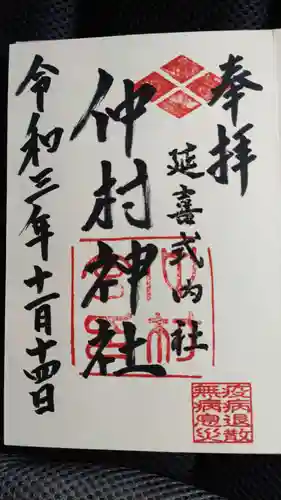 奉拝
延喜式内社
仲村神社
仲村
神社
令和三年十一月十四日
疫病退散
無病息災